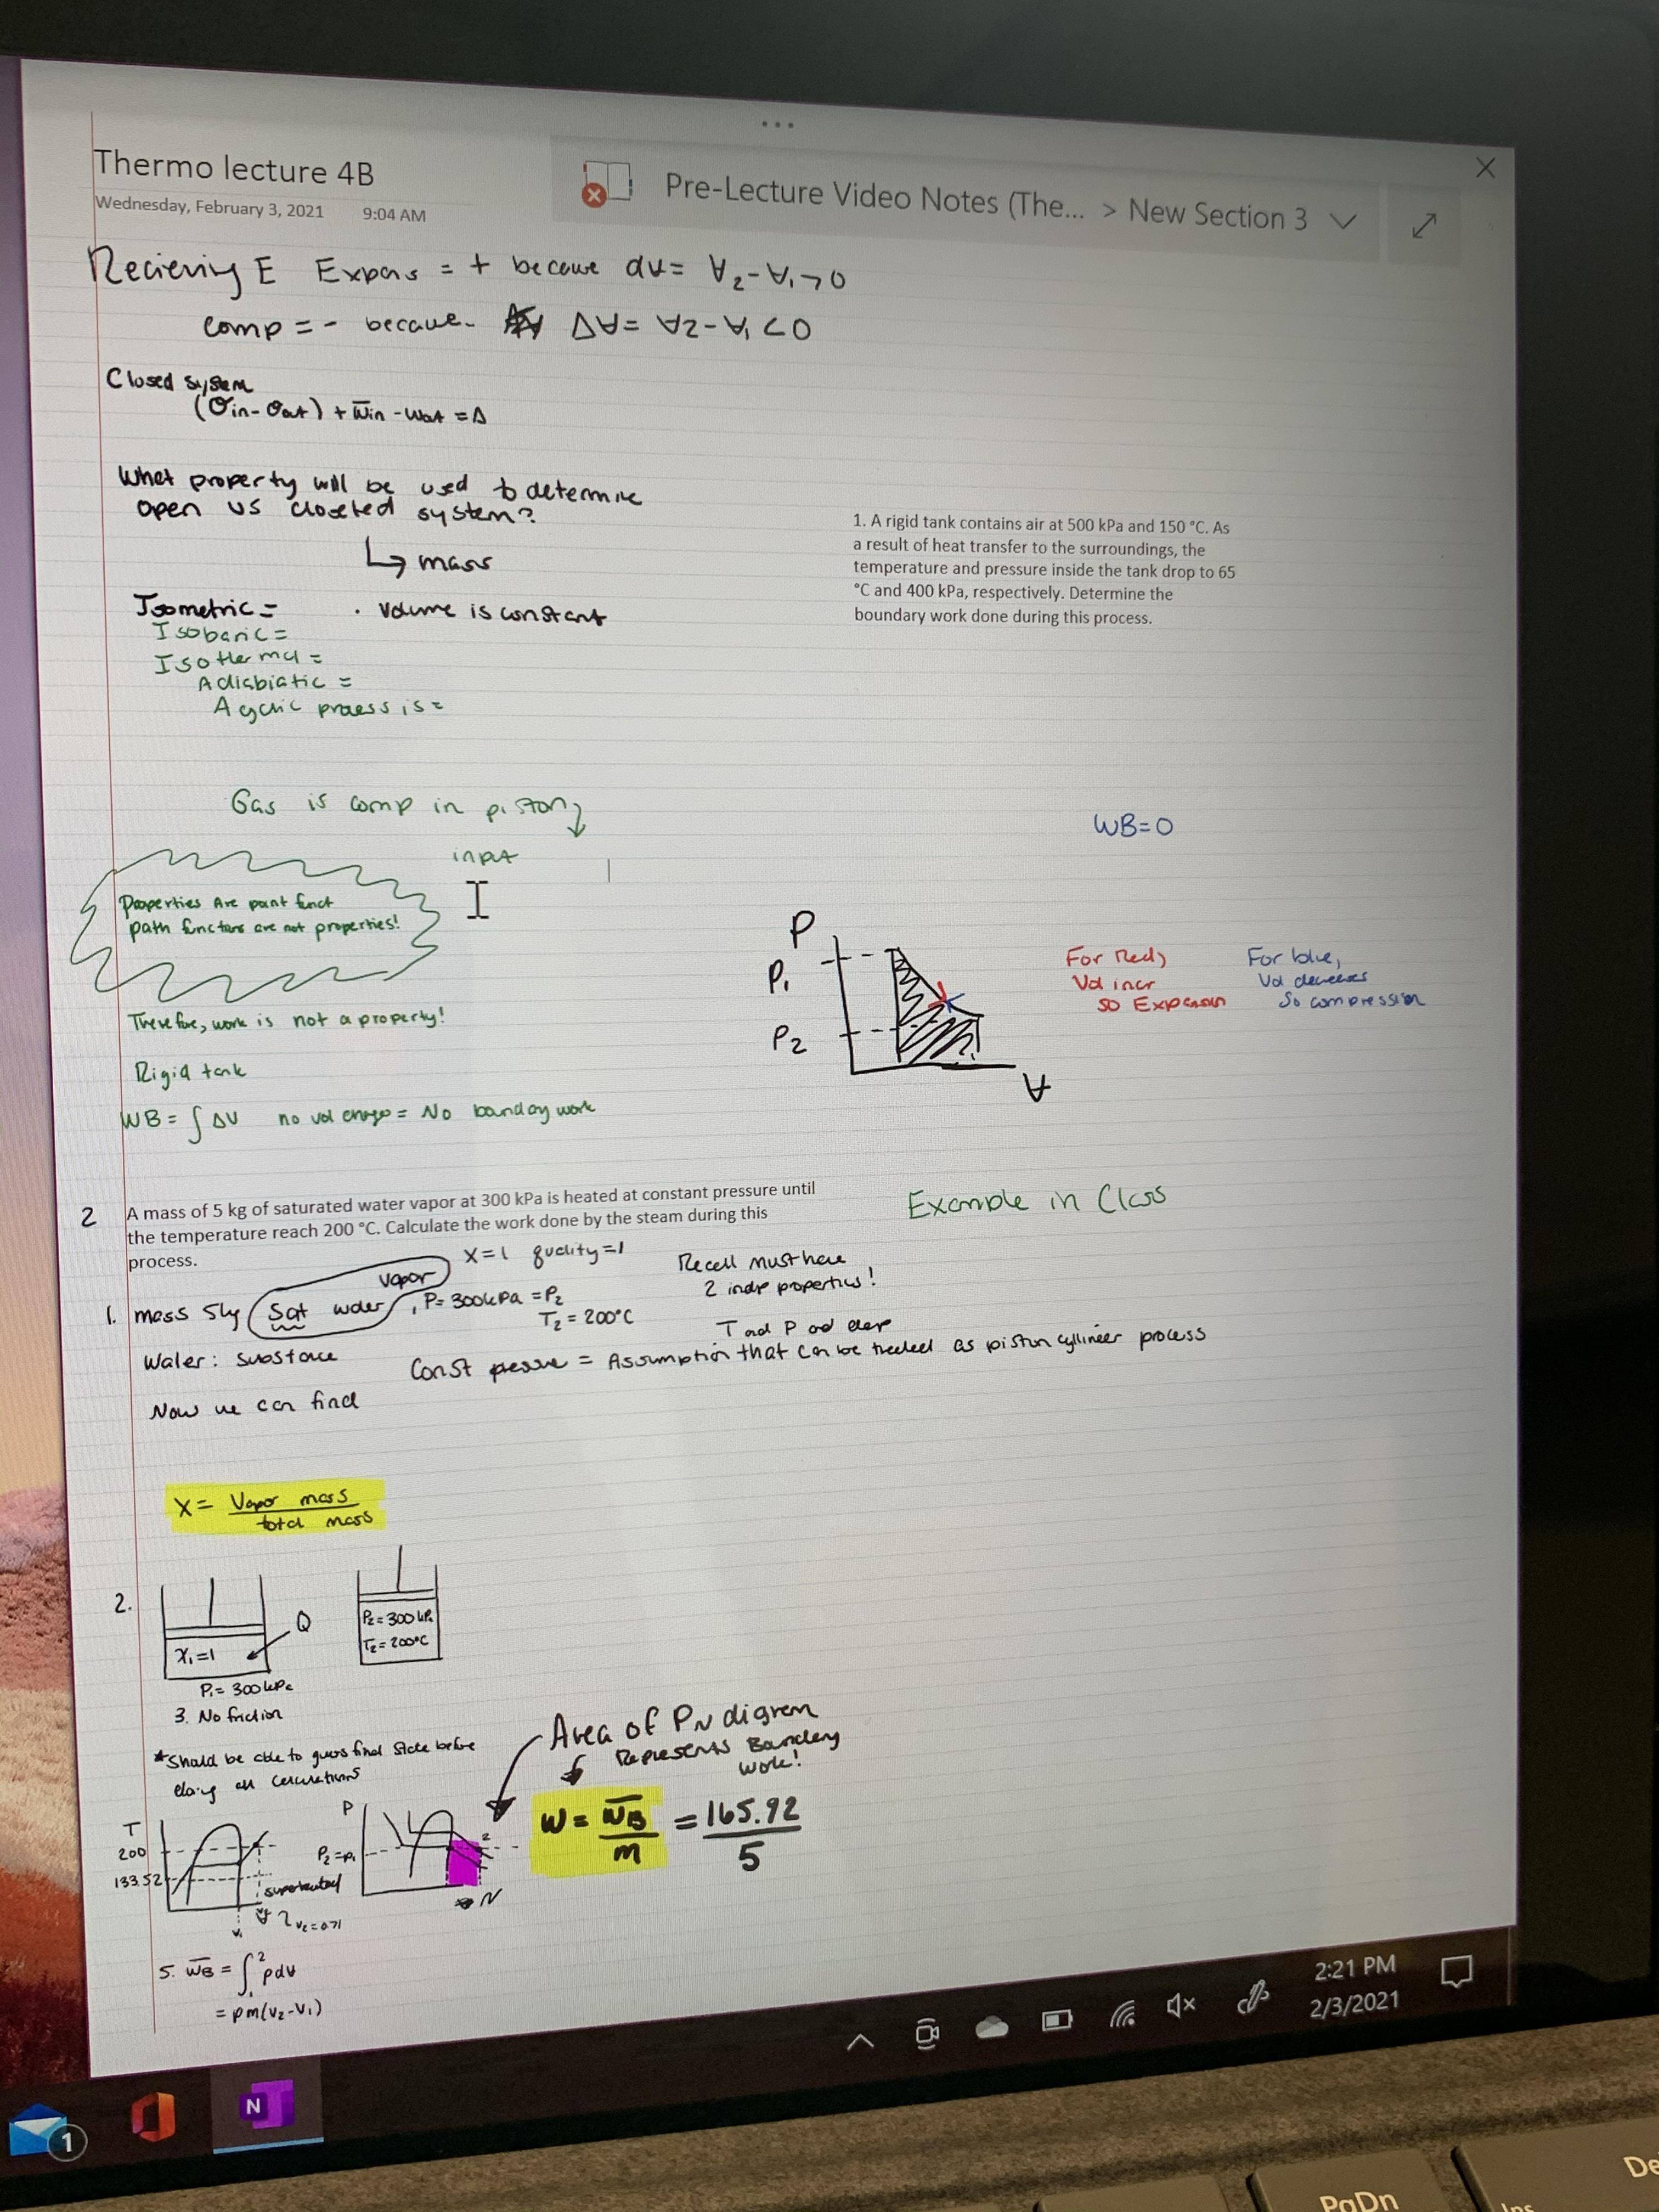 Thermo lecture 4B
Wednesday, February 3, 2021 9:04 AM
Pre-Lecture Video Notes (The... > New Section 3
Recieving E Expans = + becaue dV = V₂-V₁>0
comp = - becaue ΔV = V2-V₁ <0
Closed system
(Qin-Qout) + Win - Wout = Δ
What property will be used to determine
open vs closeted system?
↳ mass
Isometric = . Volume is constant
Isobaric =
Isothermal =
Adiabiatic =
A cyclic process is =
1. A rigid tank contains air at 500 kPa and 150 °C. As
a result of heat transfer to the surroundings, the
temperature and pressure inside the tank drop to 65
°C and 400 kPa, respectively. Determine the
boundary work done during this process.
Gas is comp in piston
input
WB=0
Properties Are point funct
path functions are not properties!
Therefore, work is not a property!
Rigid tank
WB = ∫ΔV no vol change = No bounday work
P
P₁
P₂
V
For Red,
Vol incr
so Expansion
For blue,
Vol decreases
So compression
2 A mass of 5 kg of saturated water vapor at 300 kPa is heated at constant pressure until
the temperature reach 200 °C. Calculate the work done by the steam during this
process.
Example in Class
X=1 quality=1
vapor
1. mass 5kg Sat water, P=300kPa =P₂
T₂ = 200°C
Recall must have
2 indp properties!
T and P dep
Water: substance
Const pressure = Assumption that can be treated as piston cyllineer process
Now we can find
X = Vapor mass
total mass
2.
Q
X₁=1
P₁= 300kPa
P₂=300kPa
T₂=200°C
3. No friction
*Should be able to guess final state before
doing all calculations
Area of PV digrem
Represents Boundery
work!
W = WB/m = 165.92/5
T
200
133.52
superheated
V₁
V₂=0.71
P
P₂=P₁
2
V
5. WB = ∫₁² pdV
= pm(V₂-V₁)
2:21 PM
2/3/2021
N
1
PgDn
Ins
De